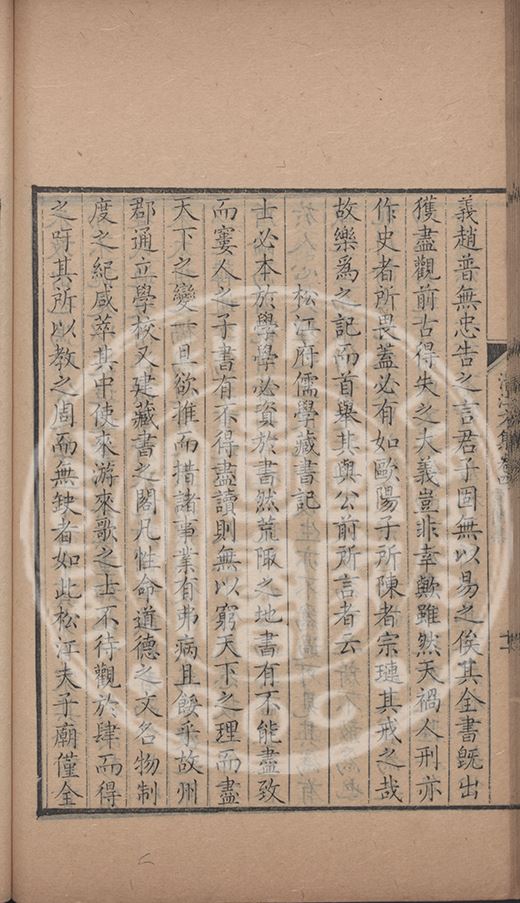 義趙普無忠告之言君子固無以易之俟其全書既出
獲盡觀前古得失之大義豈非幸歟雖然天禍人刑亦
作史者所畏蓋必有如歐陽子所陳者宗璉其戒之哉
故樂爲之記而首舉其與公前所言者云
松江府儒學藏書記
士必本於學學必資於書然荒陬之地書有不能盡致
而寠人之子書有不得盡讀則無以窮天下之理而盡
天下之變一旦欲推而措諸事業有弗病且餒乎故州
郡通立學校又建藏書之閣凡性命道德之文名物制
度之紀咸萃其中使來游來歌之士不待觀於肆而得
之吁其所以教之周而無缺者如此松江夫子廟僅全